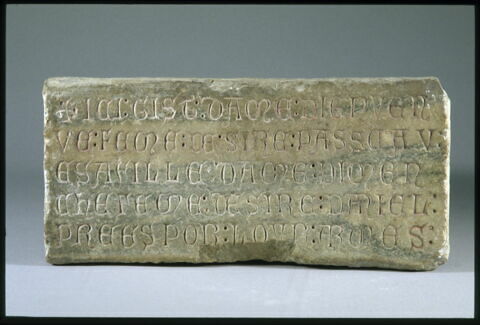 ✠ ICI : GIST : DAME :
VE : FEME : DE : SIRE : PASSEAV :
E SA FILLE : DAME : DIMEN
CHE FEME : DE SIRE : DANIEL :
PREES POR : LOVR : AMES :